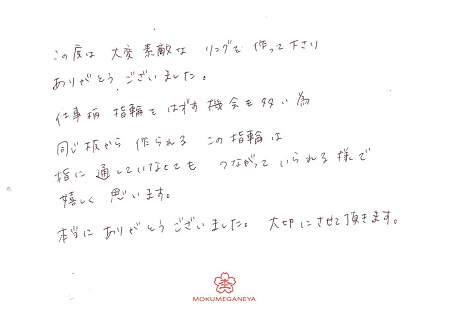 この度は 大変 素敵な リングを 作って下さり
ありがとう ございました。
仕事柄 指輪を はずす 機会も多い為
同じ板から 作られる この指輪は
指に 通していなくても つながって いられる 様で
嬉しく 思います。
本当に ありがとう ございました。 大切にさせて頂きます。
MOKUMEGANEYA